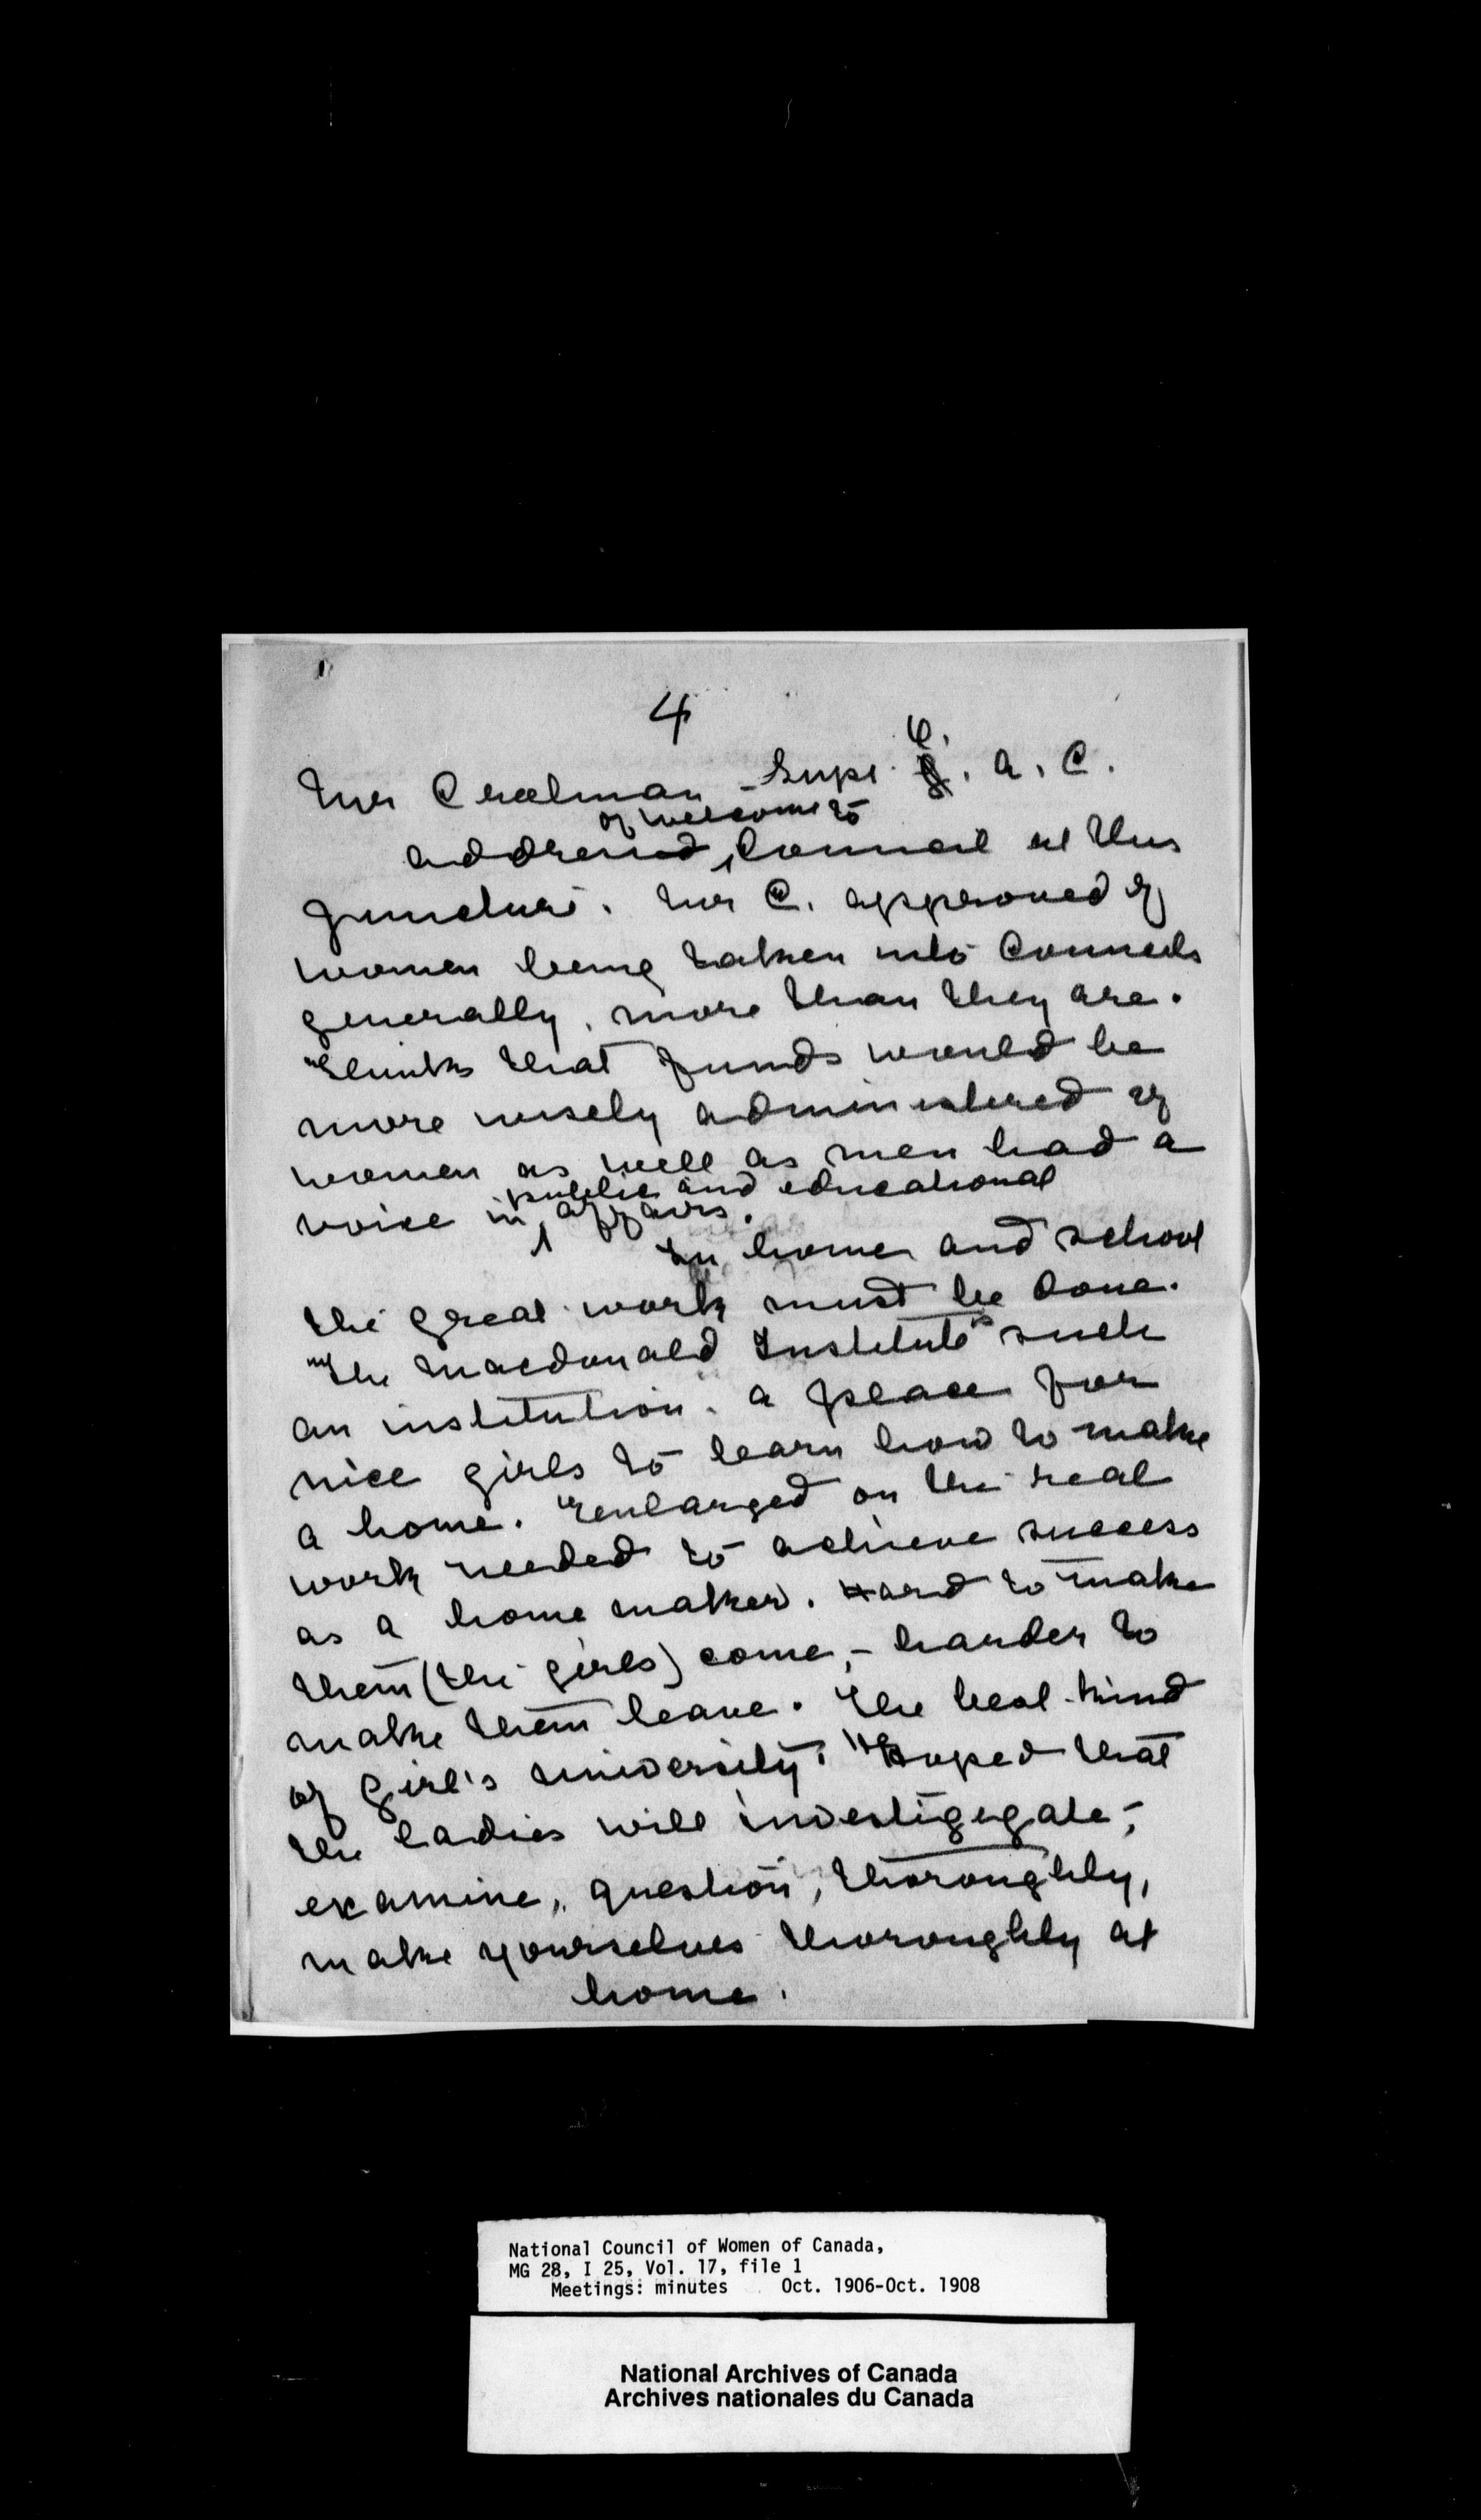 4
O.
Mr Creelman - Supt. G. A. C.
of welcome to
address Council at this
juncture. Mr C. approved of
women being taken into Councils
generally, more than they are.
Thinks that funds would be
more wisely administered if
women as well as men had a
public and educational
voice in affairs.
In home and school
the great work must be done.
The Macdonald Institute is such
an institution. a place for
nice girls to learn how to make
a home. Enlarged on the real
work needed to achieve success
as a home maker. Hard to make
them (the girls) come, - harder to
make them leave. The best kind
of Girl's University. "Hoped that
the ladies will investigegate,
examine, question, thoroughly,
make yourselves thoroughly at
home.
National Council of Women of Canada,
MG 28, I 25, Vol. 17, file 1
Meetings: minutes Oct. 1906-Oct. 1908
National Archives of Canada
Archives nationales du Canada